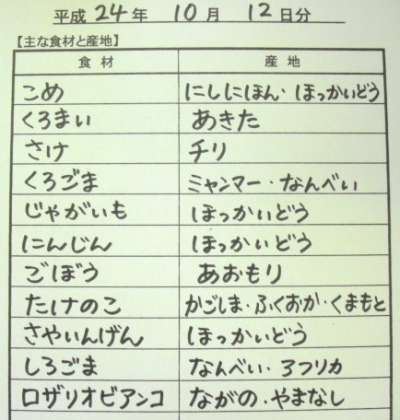 平成 24 年 10 月 12 日分
【主な食材と産地】
食材 産地
こめ にしにほん・ほっかいどう
くろまい あきた
さけ チリ
くろごま ミャンマー・なんべい
じゃがいも ほっかいどう
にんじん ほっかいどう
ごぼう あおもり
たけのこ かごしま・ふくおか・くまもと
さやいんげん ほっかいどう
しろごま なんべい・アフリカ
ロザリオビアンコ ながの・やまなし